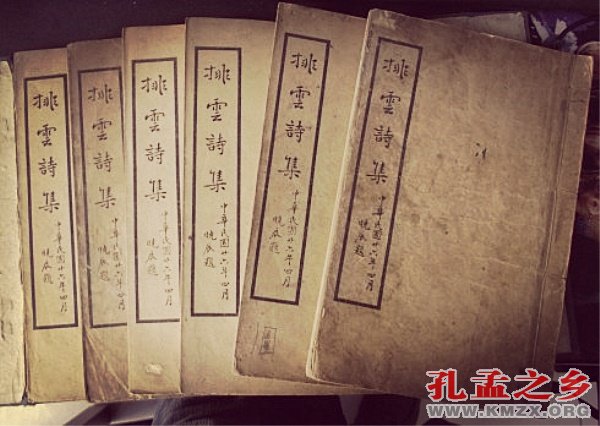 排雲詩集
中華民國廿六年四月
題
排雲詩集
中華民國廿六年四月
題
排雲詩集
中華民國廿六年四月
題
排雲詩集
中華民國廿六年四月
題
排雲詩集
中華民國廿六年四月
題
排雲詩集
中華民國廿六年四月
題
孔孟之乡
WWW.KMZX.ORG